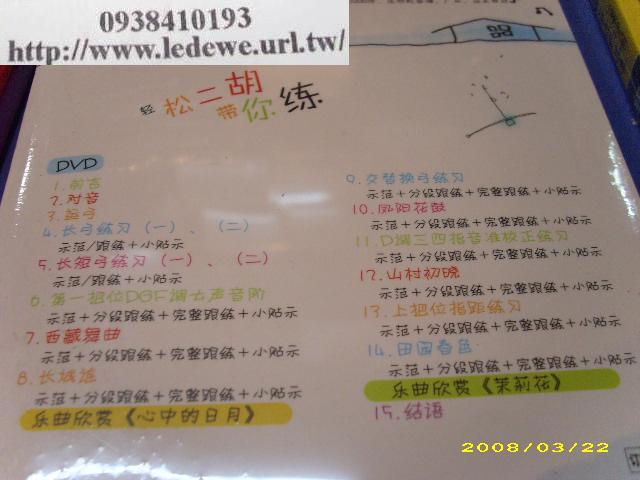 0938410193
http://www.ledewe.url.tw/
轻松二胡带你练
DVD
1.前言
2.对音
3.运弓
4.长弓练习（一）、（二）
示范/跟练＋小贴示
5.长短弓练习（一）、（二）
示范/跟练＋小贴示
6.第一把位DGF调七声音阶
示范＋分段跟练＋完整跟练＋小贴示
7.西藏舞曲
示范＋分段跟练＋完整跟练＋小贴示
8.长城谣
示范＋分段跟练＋完整跟练＋小贴示
乐曲欣赏《心中的日月》
9.交替换弓练习
示范＋分段跟练＋完整跟练＋小贴示
10.凤阳花鼓
示范＋分段跟练＋完整跟练＋小贴示
11.D调三四指音准校正练习
示范＋分段跟练＋完整跟练＋小贴示
12.山村初晓
示范＋分段跟练＋完整跟练＋小贴示
13.上把位指距练习
示范＋分段跟练＋完整跟练＋小贴示
14.田园春色
示范＋分段跟练＋完整跟练＋小贴示
乐曲欣赏《茉莉花》
15.结语
2008/03/22